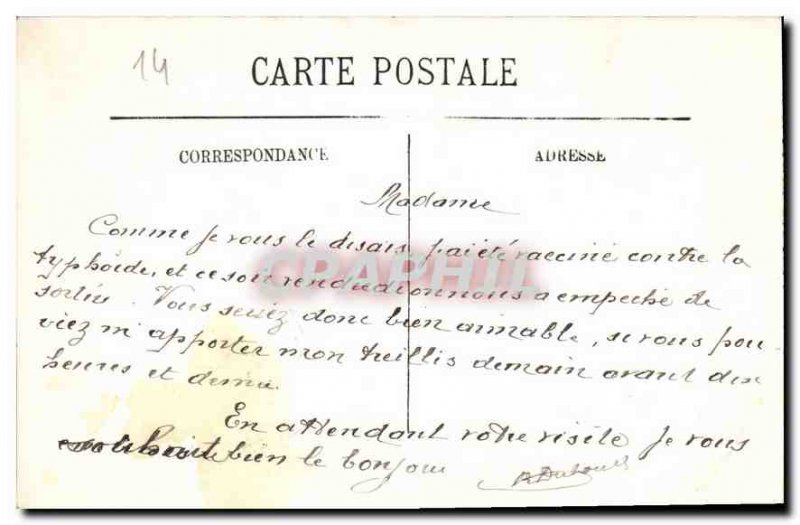 14
CARTE POSTALE
CORRESPONDANCE
ADRESSE
Madame
Comme je vous le disais, j'ai été vacciné contre la
typhoïde, et ce soir on nous a empeché de
sortir. Vous seriez donc bien aimable, si vous pou-
viez m'apporter mon treillis demain avant
heures et demie.
En attendant votre visite je vous
souhaite bien le bonjour
CPAPHIL